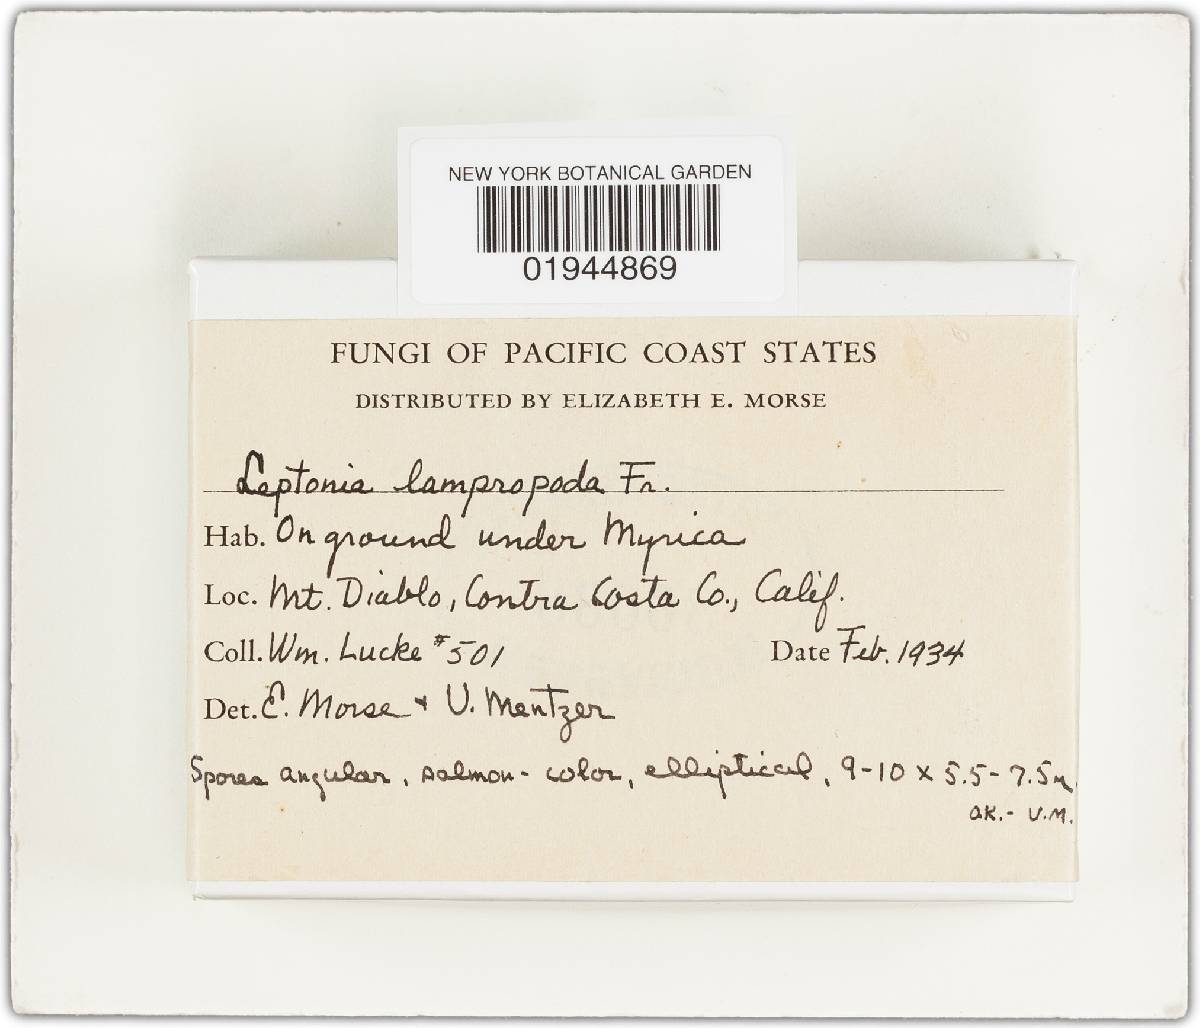 NEW YORK BOTANICAL GARDEN
01944869
FUNGI OF PACIFIC COAST STATES
DISTRIBUTED BY ELIZABETH E. MORSE
Leptonia lampropoda Fr.
Hab. On ground under Myrica
Loc. Mt. Diablo, Contra Costa Co., Calif.
Coll. Wm. Lucke #501 Date Feb. 1934
Det. E. Morse & V. Mentzer
Spores angular, salmon-color, elliptical, 9-10 x 5.5-7.5µ
OK.- V.M.